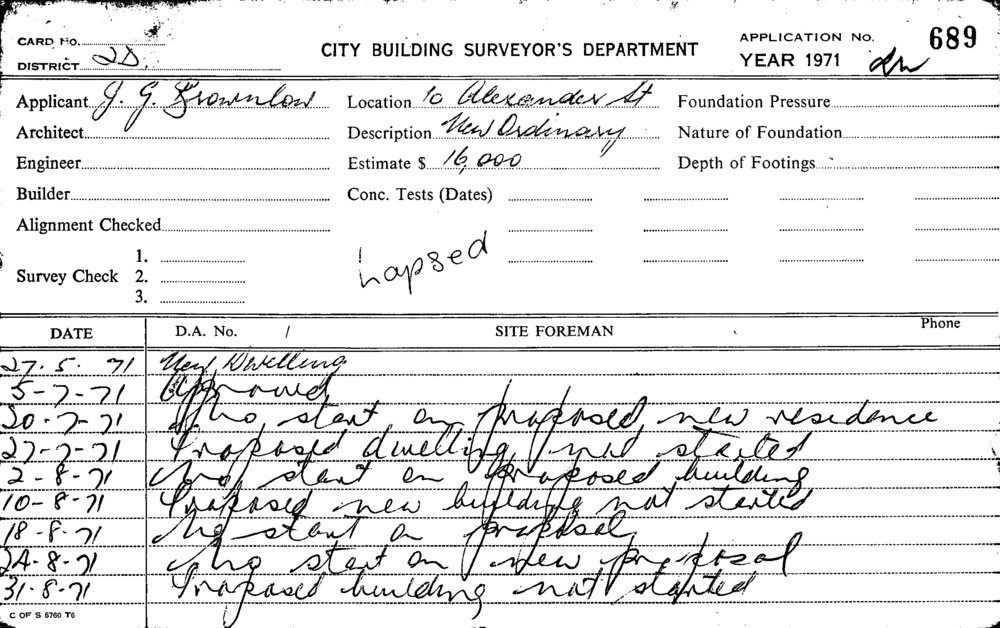 CARD No.
DISTRICT 2D.
CITY BUILDING SURVEYOR'S DEPARTMENT
APPLICATION No. 689
YEAR 1971
Applicant J. G. Brownlow Location 10 Alexander St Foundation Pressure
Architect Description New Ordinary Nature of Foundation
Engineer Estimate $ 16,000 Depth of Footings
Builder Conc. Tests (Dates)
Alignment Checked
Lapsed
Survey Check 1.
2.
3.
DATE D.A. No. / SITE FOREMAN Phone
27. 5. 71 New Dwelling
5-7-71 Approved
20-7-71 No start on proposed new residence
27-7-71 Proposed dwelling not started
2-8-71 No start on proposed building
10-8-71 Proposed new building not started
18-8-71 No start on proposal
24-8-71 No start on new proposal
31-8-71 Proposed building not started
C OF S 6760 T6